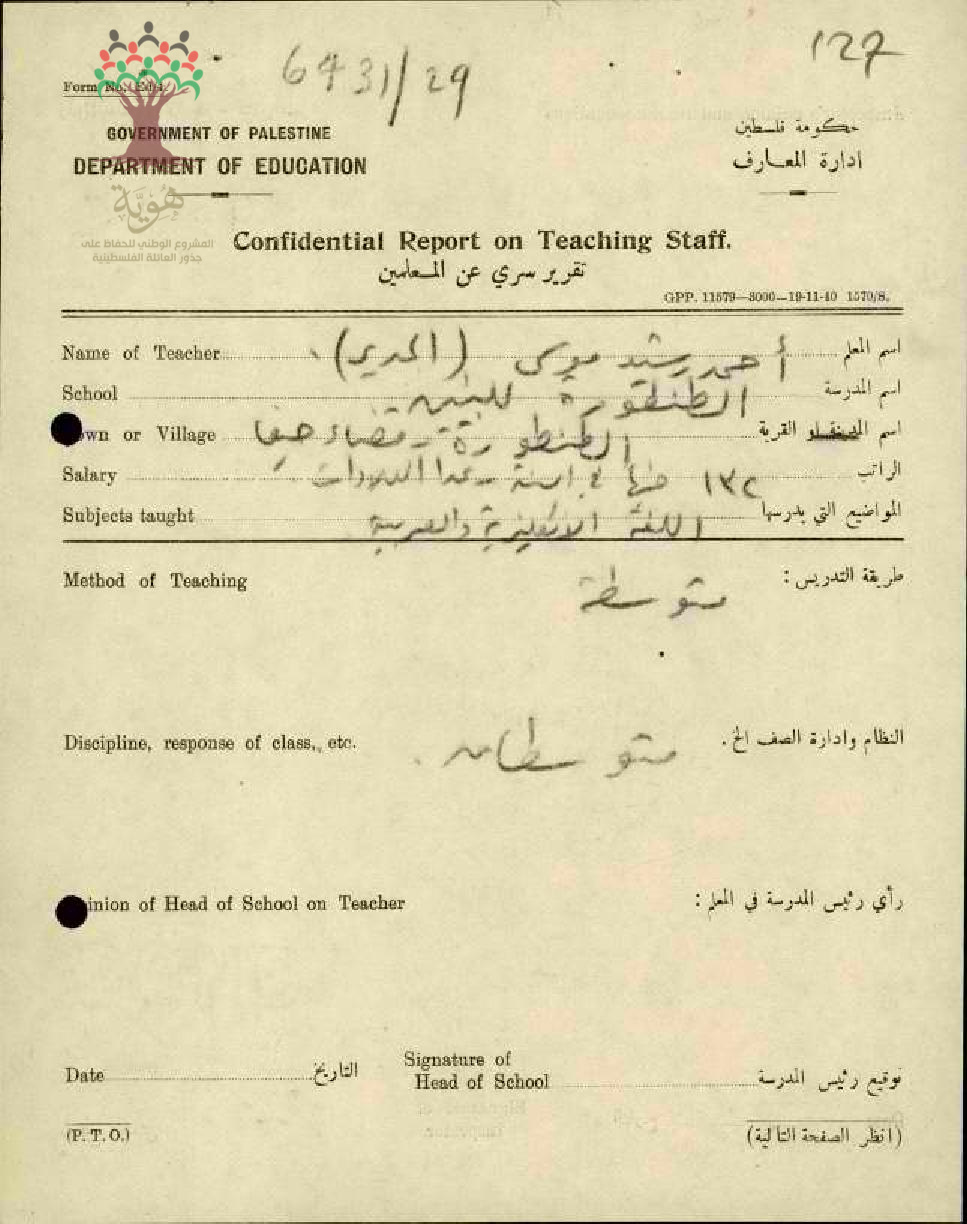 127
6431/29
Form No. Ed/4
GOVERNMENT OF PALESTINE
حكومة فلسطين
DEPARTMENT OF EDUCATION
ادارة المعارف
هُوِيَّة
المشروع الوطني للحفاظ على
جذور العائلة الفلسطينية
Confidential Report on Teaching Staff.
تقرير سري عن المعلمين
GPP. 11579—3000—19-11-40 1570/S.
Name of Teacher أحمد رشيد موسى اسم المعلم
School الطنطورة للبنين اسم المدرسة
Town or Village الطنطورة قضاء حيفا اسم القرية
Salary ١٣٢ جنيها في السنة عدا العلاوات الراتب
Subjects taught اللغة الانكليزية والعربية المواضيع التي يدرسها
Method of Teaching طريقة التدريس :
متوسطة
Discipline, response of class, etc. النظام وادارة الصف الخ .
متوسطان .
Opinion of Head of School on Teacher رأي رئيس المدرسة في المعلم :
Date التاريخ Signature of
Head of School توقيع رئيس المدرسة
(P. T. O.) (انظر الصفحة التالية)